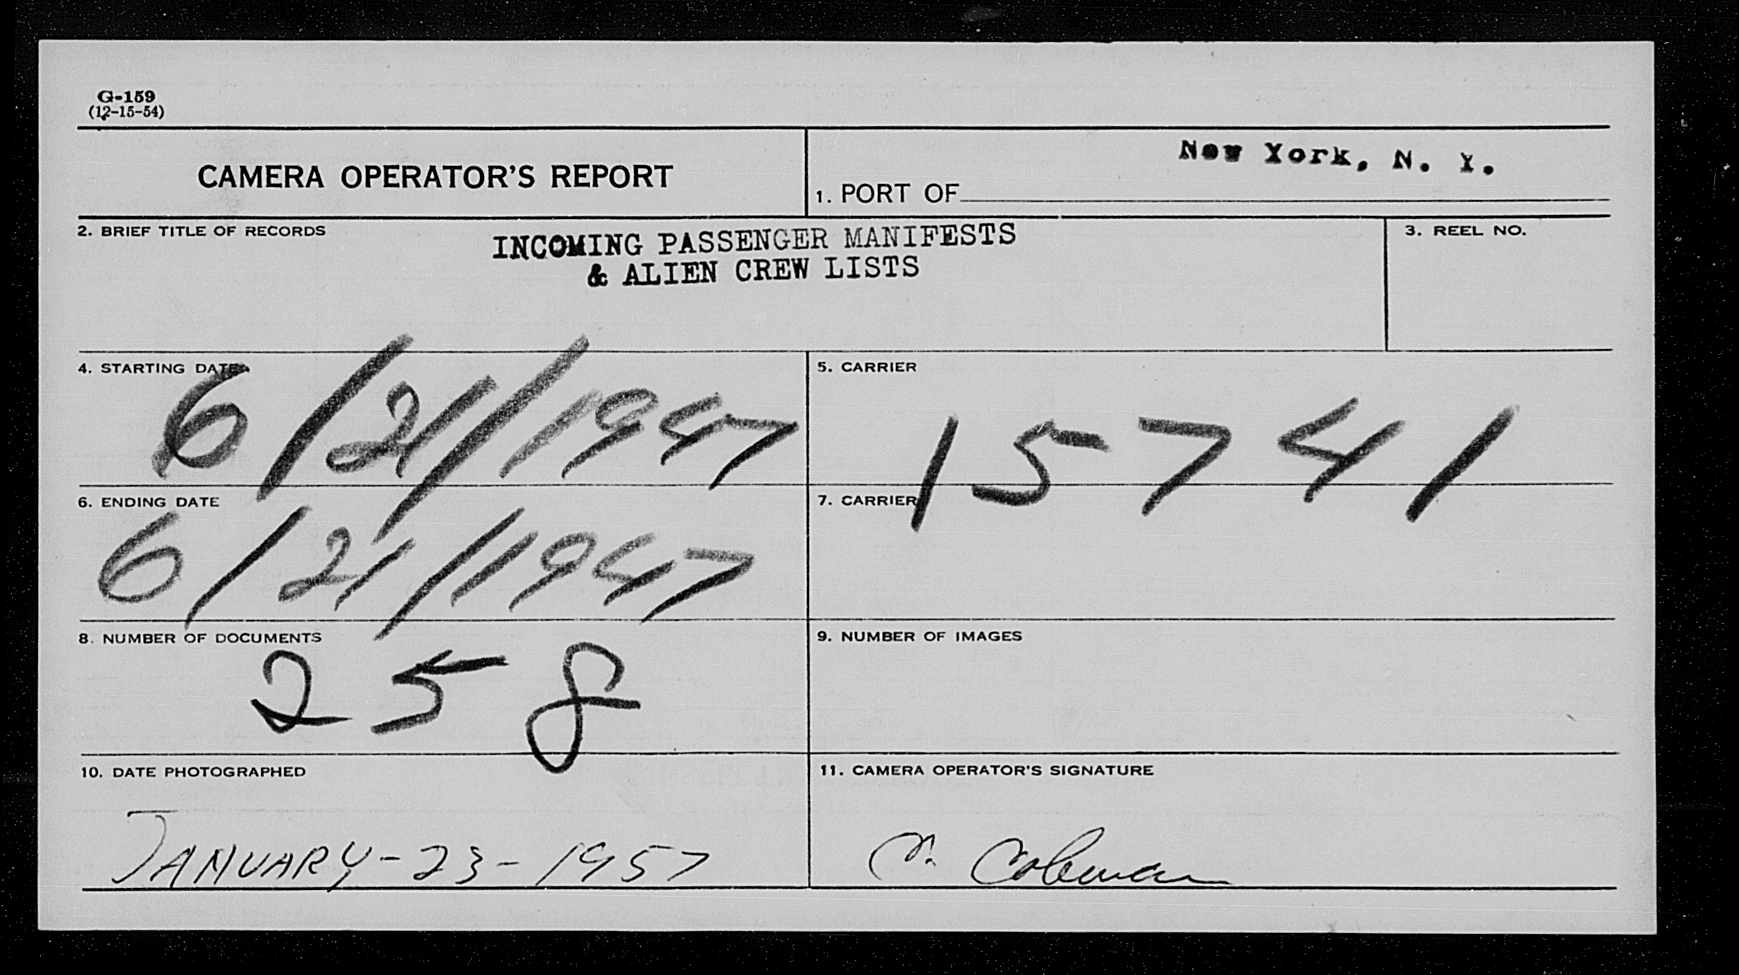 G-159
(12-15-54)
CAMERA OPERATOR'S REPORT
New York, N. Y.
1. PORT OF
2. BRIEF TITLE OF RECORDS
INCOMING PASSENGER MANIFESTS
& ALIEN CREW LISTS
3. REEL NO.
4. STARTING DATE
6/21/1947
5. CARRIER
15741
6. ENDING DATE
6/21/1947
7. CARRIER
8. NUMBER OF DOCUMENTS
258
9. NUMBER OF IMAGES
10. DATE PHOTOGRAPHED
JANUARY-23-1957
11. CAMERA OPERATOR'S SIGNATURE
Coleman